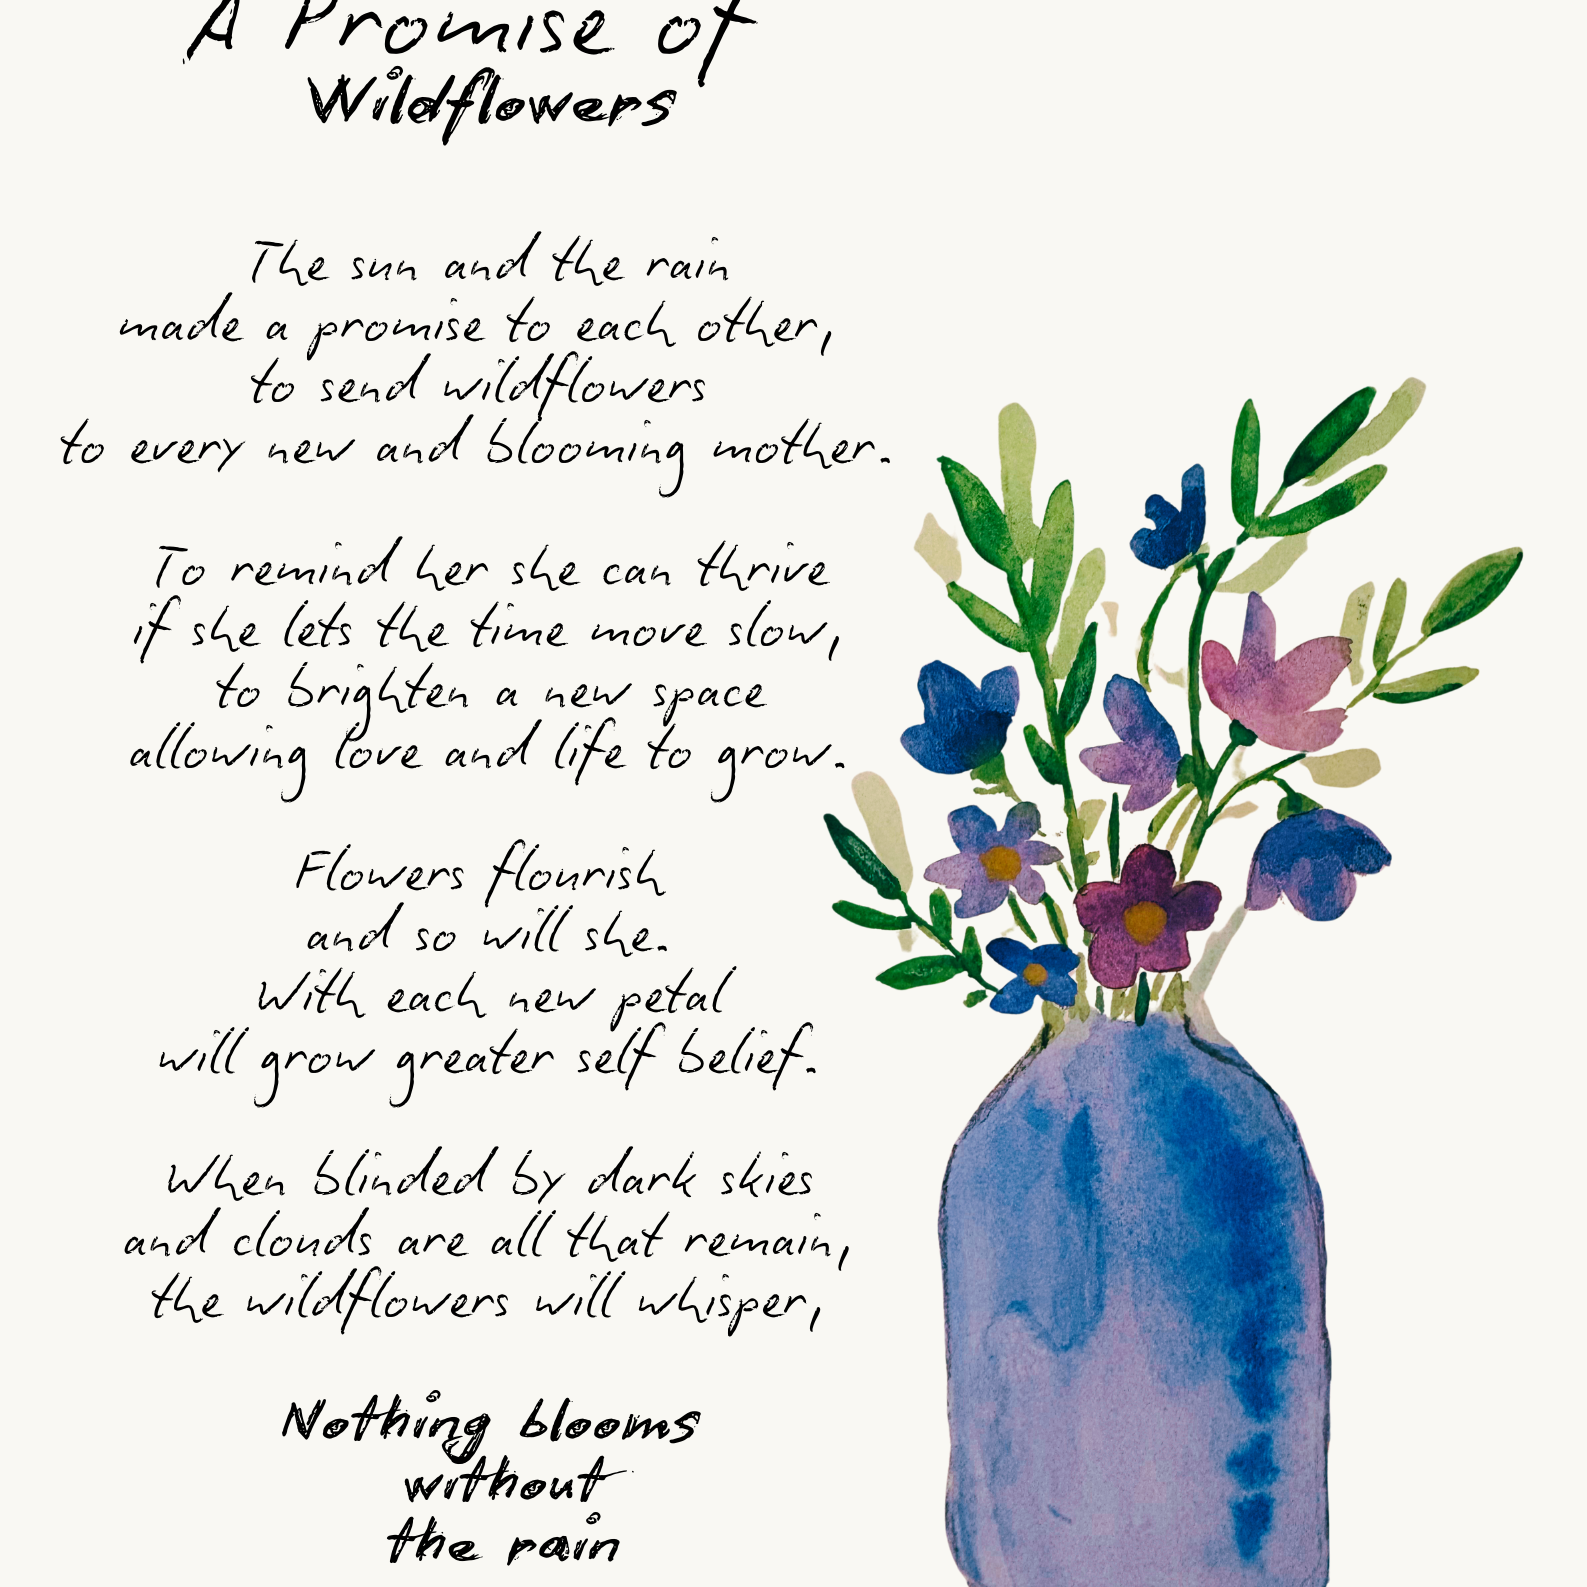 A Promise of
Wildflowers
The sun and the rain
made a promise to each other,
to send wildflowers
to every new and blooming mother.
To remind her she can thrive
if she lets the time move slow,
to brighten a new space
allowing love and life to grow.
Flowers flourish
and so will she.
With each new petal
will grow greater self belief.
When blinded by dark skies
and clouds are all that remain,
the wildflowers will whisper,
Nothing blooms
without
the rain